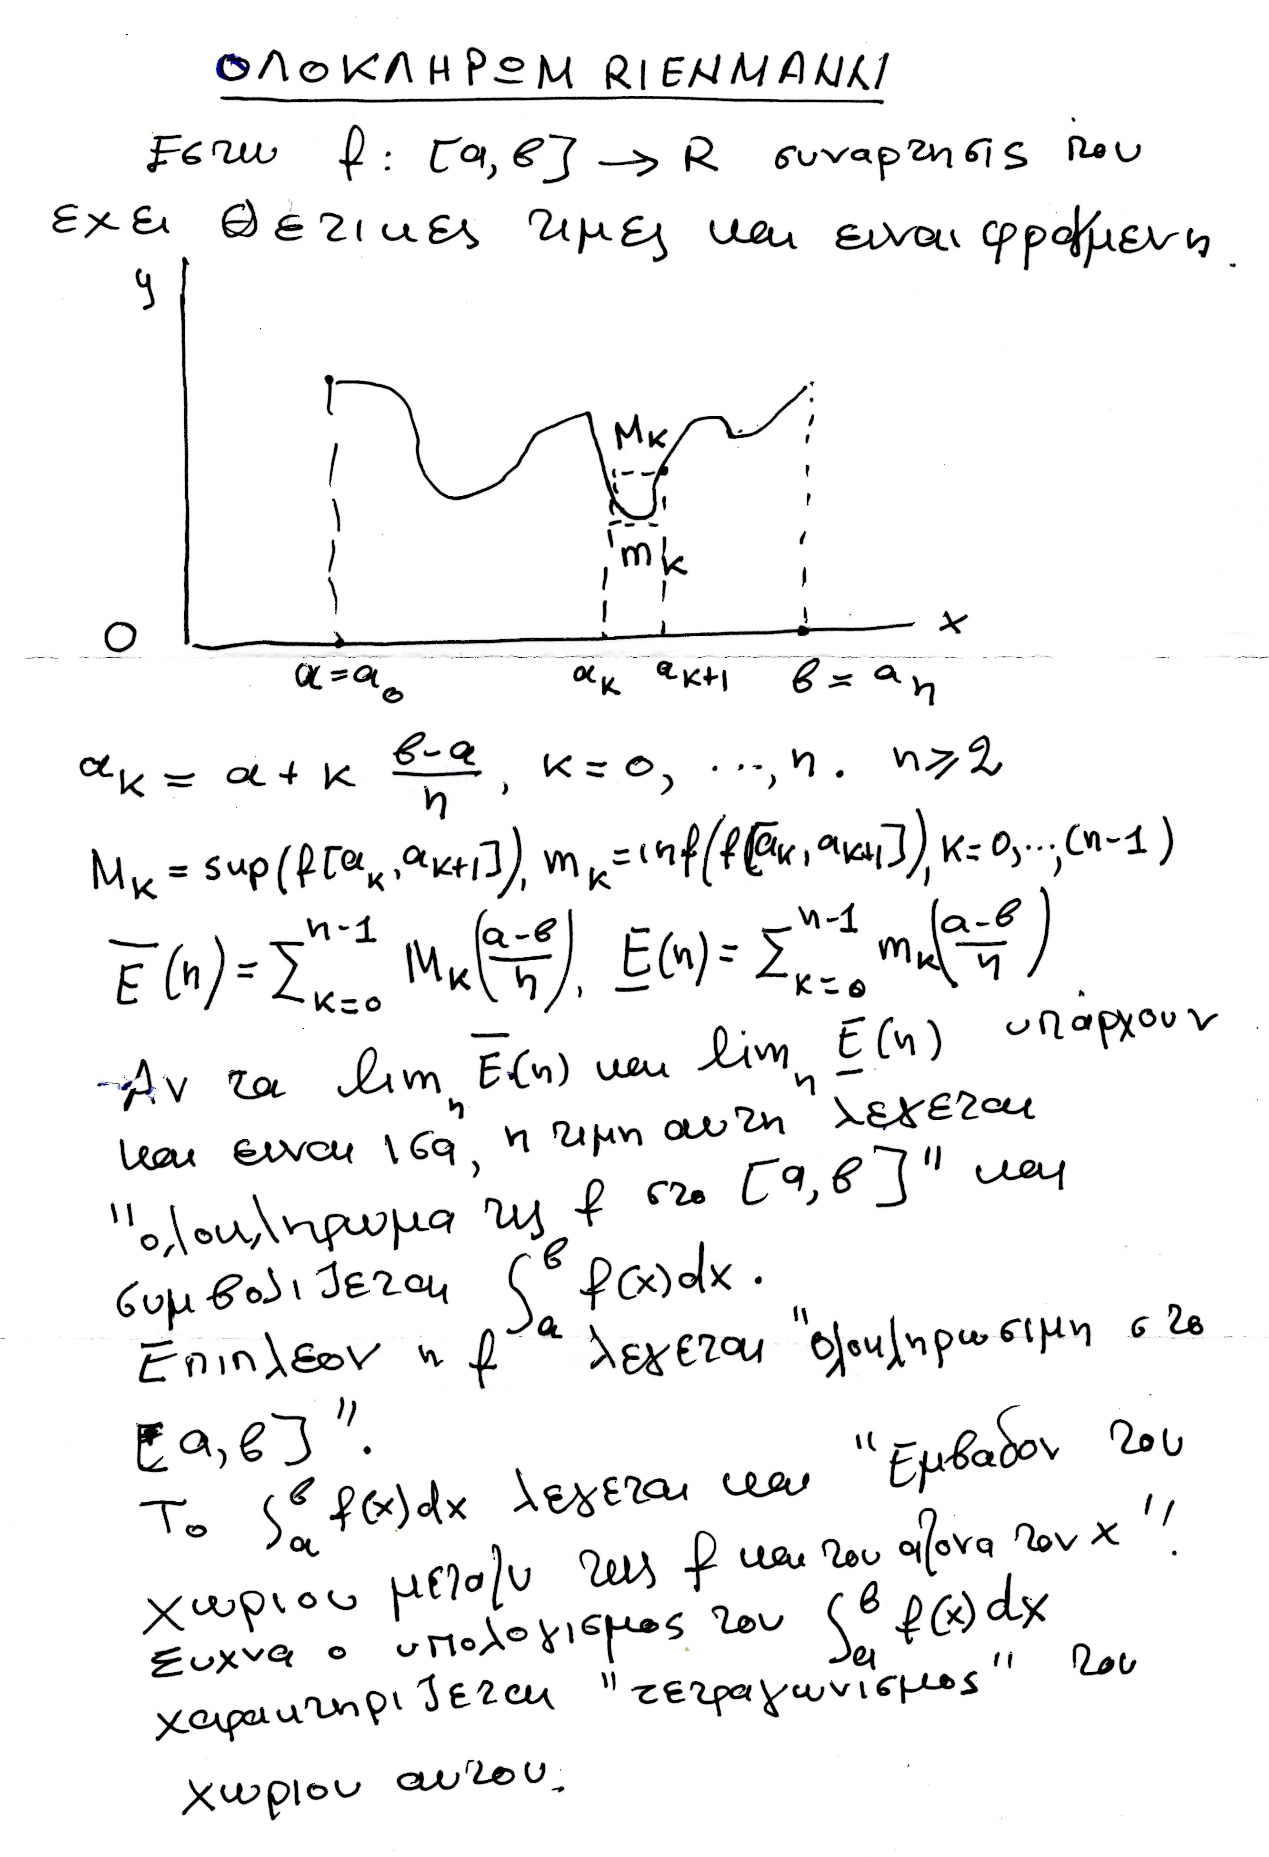 ΟΛΟΚΛΗΡΩΜ RIENMANNI
Εστω f: [a,b] → R συναρτησις που
εχει θετικες τιμες και ειναι φραγμενη.
y
M_K
m_K
O
x
α=a_0 α_K a_{K+1} b=a_n
α_K = α + K \frac{b-a}{n}, K=0, ..., n. n≥2
M_K = sup(f[a_K, a_{K+1}]), m_K = inf(f[a_K, a_{K+1}]), K=0,...,(n-1)
\overline{E}(n) = Σ_{K=0}^{n-1} M_K(\frac{a-b}{n}), \underline{E}(n) = Σ_{K=0}^{n-1} m_K(\frac{a-b}{n})
Αν τα lim_n \overline{E}(n) και lim_n \underline{E}(n) υπάρχουν
και ειναι ισα, η τιμη αυτη λεγεται
"ολοκληρωμα της f στο [a,b]" και
συμβολιζεται ∫_a^b f(x)dx.
Επιπλεον η f λεγεται "ολοκληρωσιμη στο
[a,b]".
Το ∫_a^b f(x)dx λεγεται και "Εμβαδον του
χωριου μεταξυ της f και του αξονα των x".
Συχνα ο υπολογισμος του ∫_a^b f(x)dx
χαρακτηριζεται "τετραγωνισμος" του
χωριου αυτου.